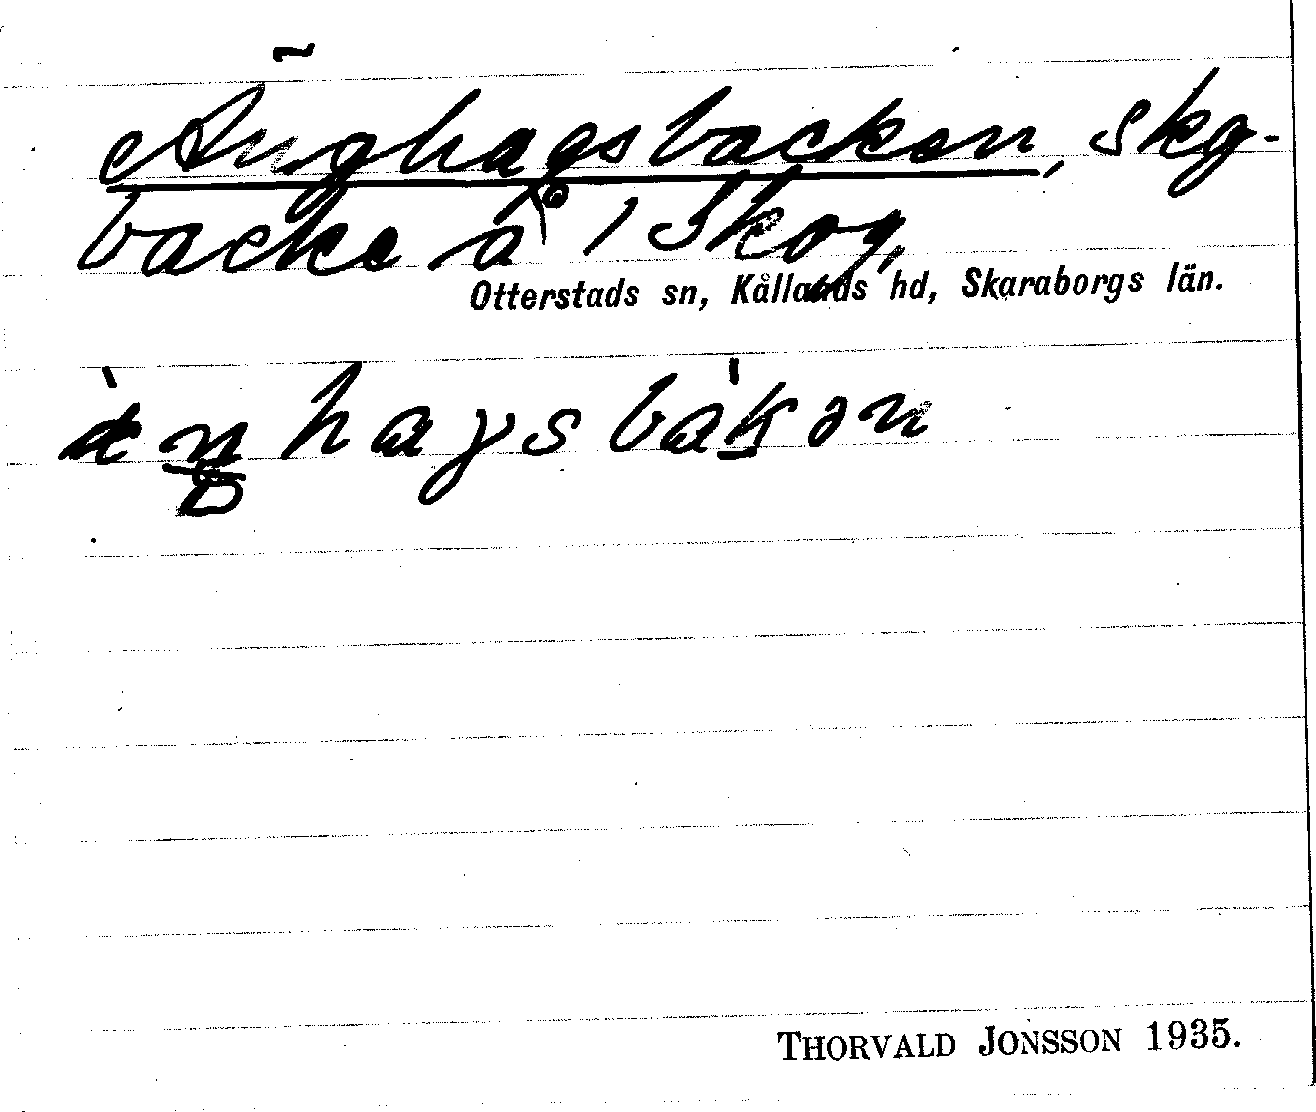 Änghagsbacken, skg-
backe å 1 Skog,
Otterstads sn, Kållands hd, Skaraborgs län.
THORVALD JONSSON 1935.